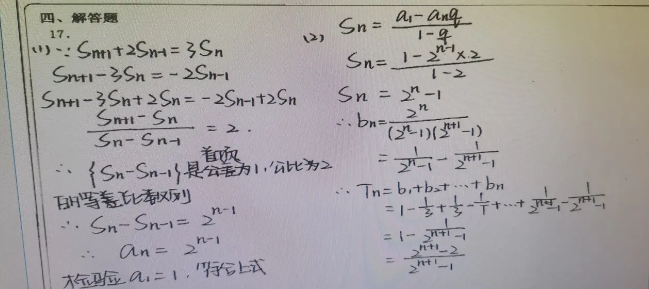 四、解答题
17.
(1) ∵ Sn+1+2Sn-1=3Sn
Sn+1-3Sn=-2Sn-1
Sn+1-3Sn+2Sn=-2Sn-1+2Sn
(Sn+1-Sn)/(Sn-Sn-1)=2.
首项
∴ {Sn-Sn-1}是公差为1,公比为2
的等比数列
∴ Sn-Sn-1=2^(n-1)
∴ an=2^(n-1)
检验a1=1,符合上式
(2) Sn=(a1-anq)/(1-q)
Sn=(1-2^(n-1)×2)/(1-2)
Sn=2^n-1
∴bn=2^n/((2^n-1)(2^(n+1)-1))
=1/(2^n-1)-1/(2^(n+1)-1)
∴Tn=b1+b2+…+bn
=1-1/3+1/3-1/7+…+1/(2^n-1)-1/(2^(n+1)-1)
=1-1/(2^(n+1)-1)
=(2^(n+1)-2)/(2^(n+1)-1)